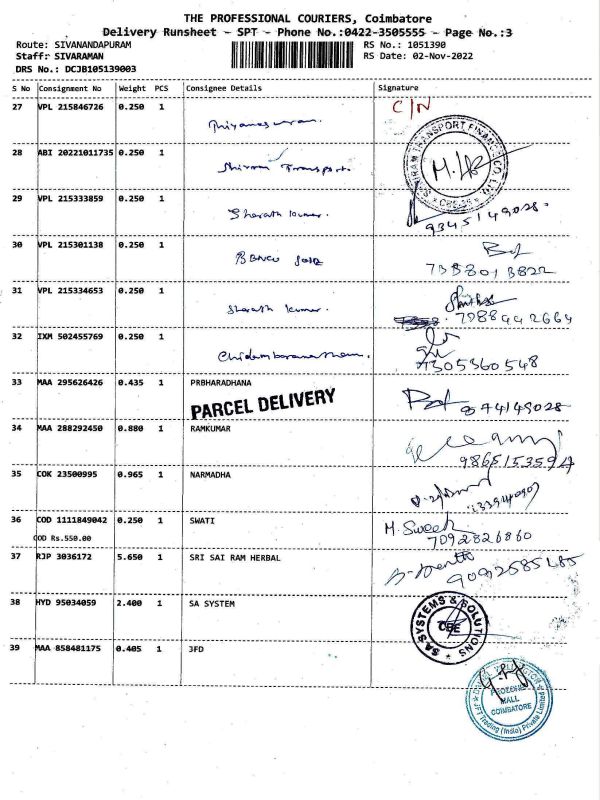 THE PROFESSIONAL COURIERS, Coimbatore
Delivery Runsheet - SPT - Phone No.:0422-3505555 - Page No.:3
Route: SIVANANDAPURAM RS No.: 1051390
Staff: SIVARAMAN RS Date: 02-Nov-2022
DRS No.: DCJB105139003
S No Consignment No Weight PCS Consignee Details Signature
27 VPL 215846726 0.250 1 C/N
28 ABI 20221011735 0.250 1 Shriram Transport.
SHRIRAM TRANSPORT FINANCE CO LTD.
29 VPL 215333859 0.250 1 Sharath kumar.
9345149028.
30 VPL 215301138 0.250 1
31 VPL 215334653 0.250 1 Sharath kumar.
7988942664
32 IXM 502455769 0.250 1
7305360548
33 MAA 295626426 0.435 1 PRBHARADHANA
PARCEL DELIVERY
34 MAA 288292450 0.880 1 RAMKUMAR
35 COK 23500995 0.965 1 NARMADHA
36 COD 1111849042 0.250 1 SWATI
COD Rs.550.00 7092826860
37 RJP 3036172 5.650 1 SRI SAI RAM HERBAL
38 HYD 95034059 2.400 1 SA SYSTEM
SA SYSTEMS & SOLUTIONS
CBE
39 MAA 858481175 0.405 1 3FD
PROZONE
MALL
COIMBATORE
JFT Trading (India) Private Limited